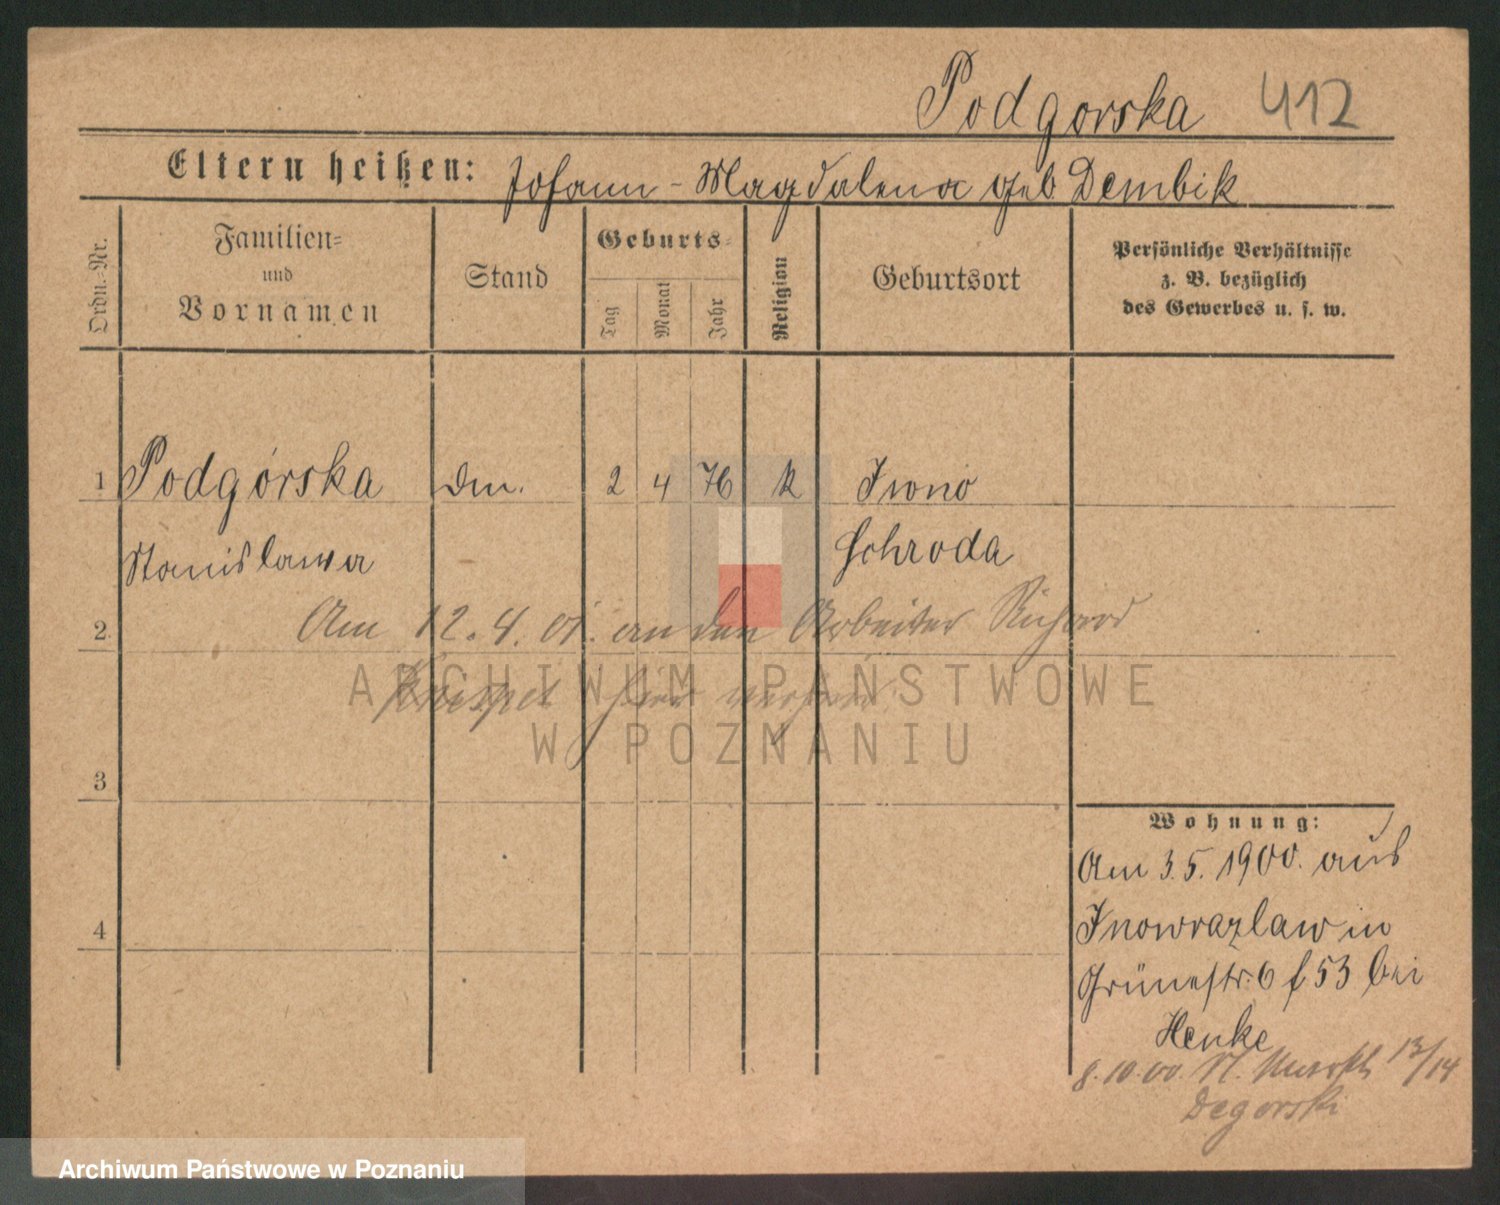 Podgorska 412
Eltern heißen: Johann - Magdalena geb Dembik
Ordn.-Nr.
Familien-
und
Vornamen
Stand
Geburts-
Tag
Monat
Jahr
Religion
Geburtsort
Persönliche Verhältnisse
z. B. bezüglich
des Gewerbes u. s. w.
1 Podgórska dm. 2 4 76 k Iwno
Stanislawa Schroda
2 Am 12.4.01. an den Arbeiter Richard
hier
ARCHIWUM PAŃSTWOWE
W POZNANIU
3
4
Wohnung:
Am 3.5.1900. aus
Inowrazlaw in
Grünestr. 6 f 53 bei
Henke
8.10.00. 13/14
Degorski
Archiwum Państwowe w Poznaniu